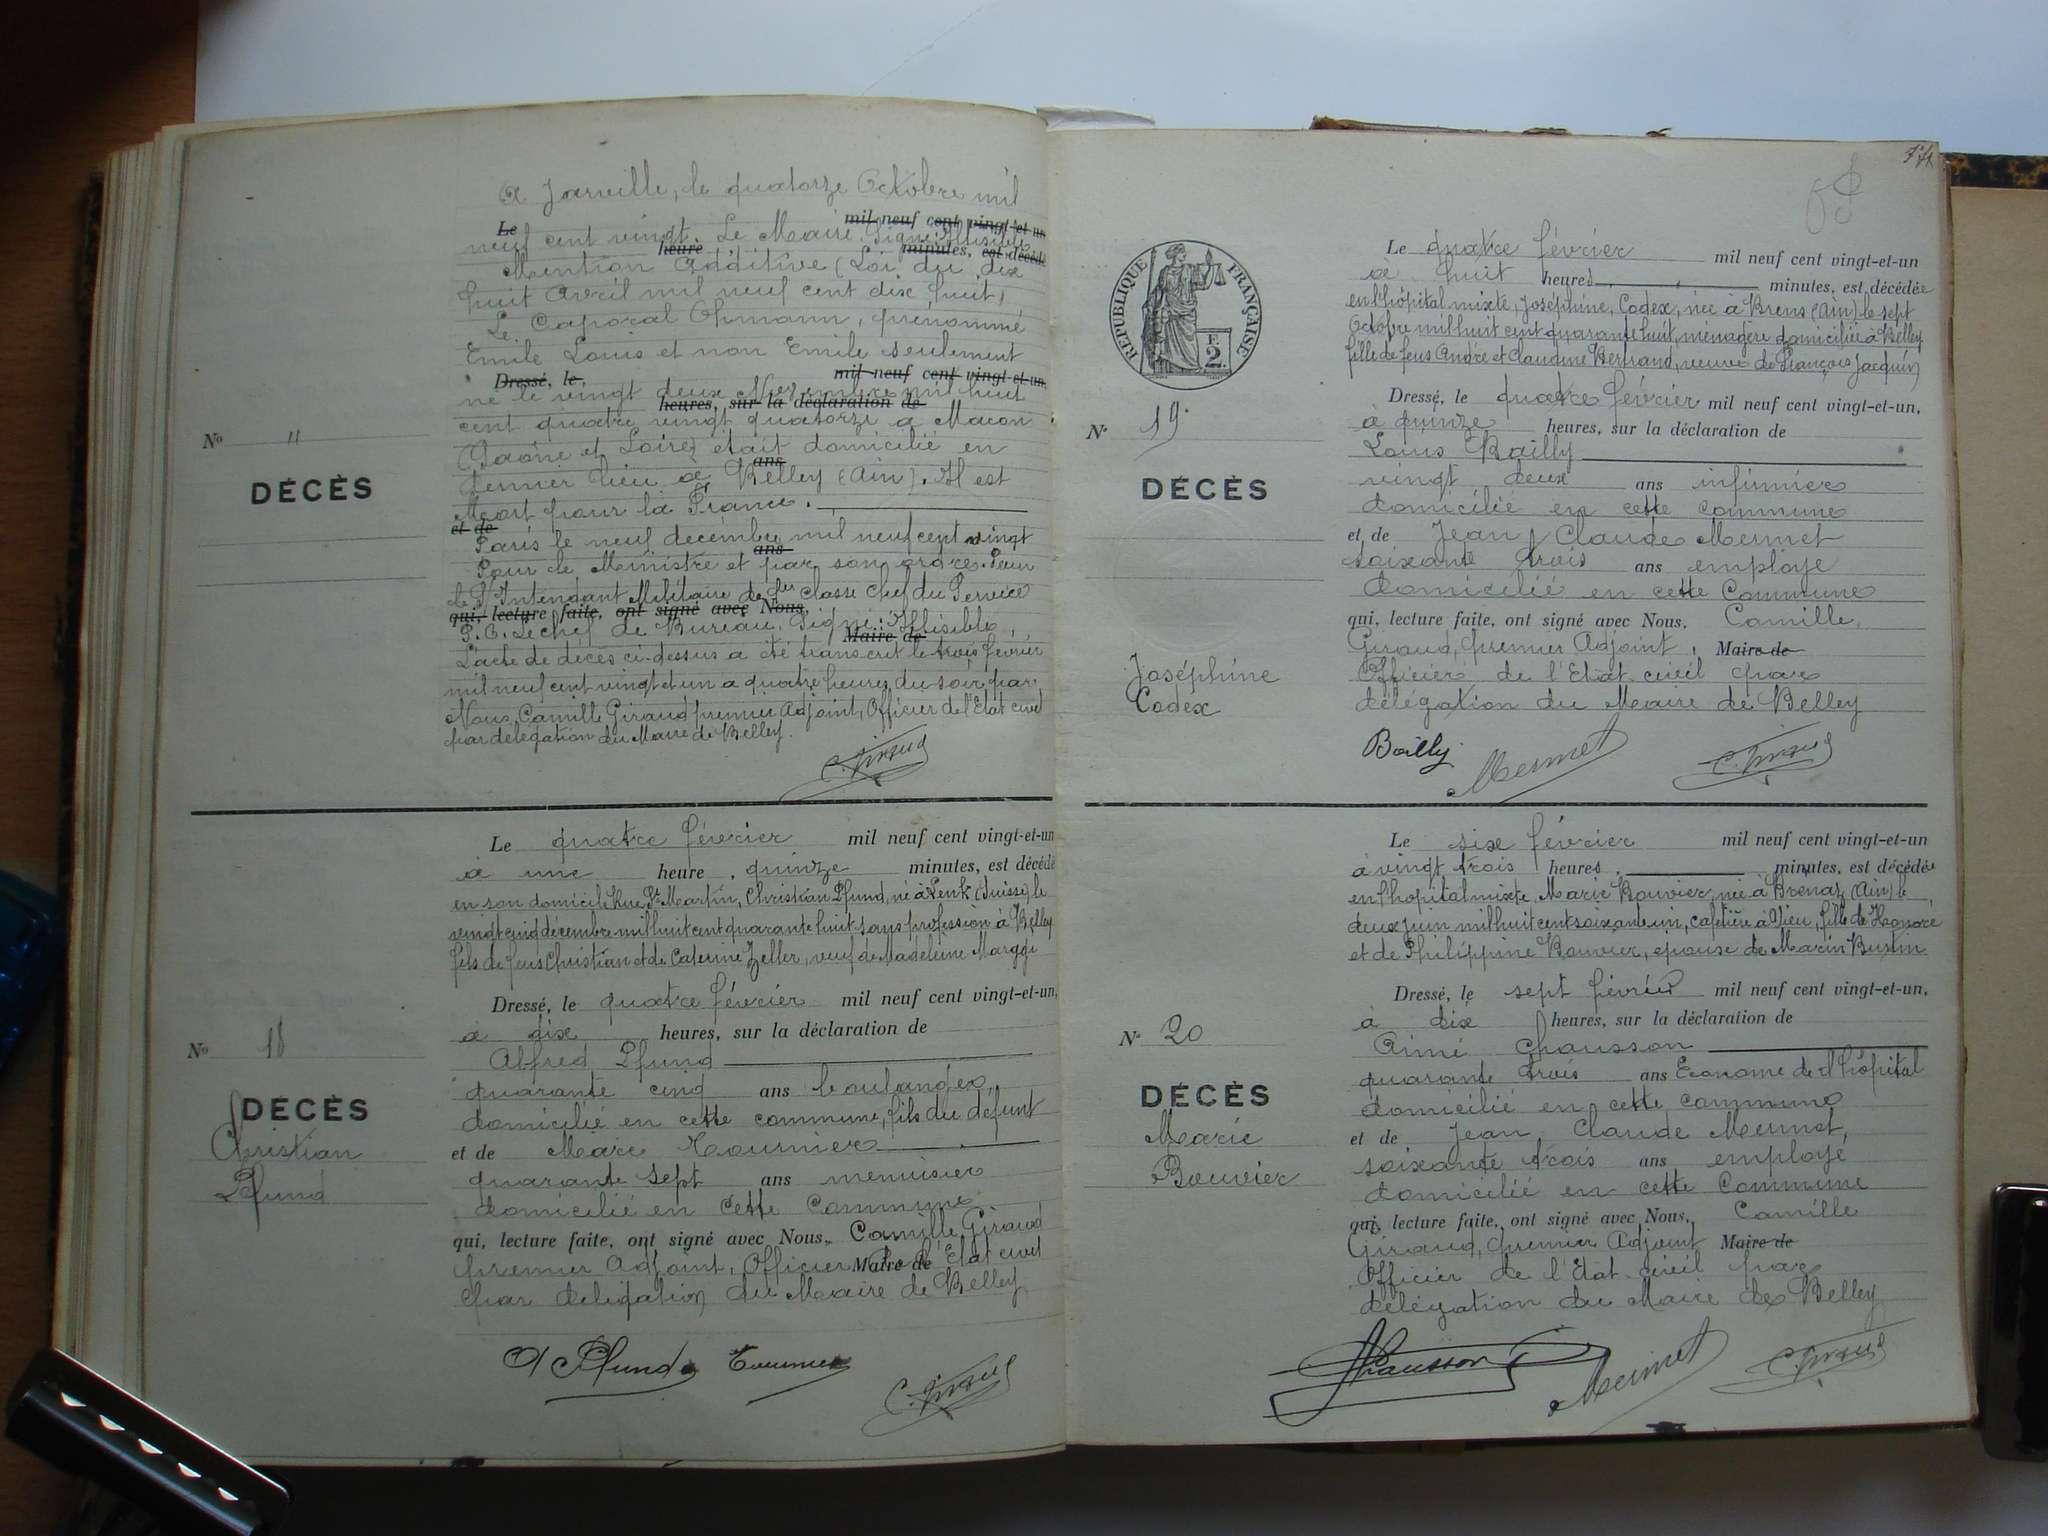 A Joinville, le quatorze Octobre mil
Le mil neuf cent vingt-et-un
neuf cent vingt. Le Maire Signé: Illisible
heure minutes, est décédé
Mention Additive (Loi du dix
huit Avril mil neuf cent dix huit)
Le Caporal Ohmann, prénommé
Emile Louis et non Emile seulement
Dressé, le, mil neuf cent vingt-et-un,
né le vingt deux Novembre mil huit
heures, sur la déclaration de
cent quatre vingt quatorze a Macon
No "
(Saône et Loire) était domicilié en
ans
dernier lieu à Belley (Ain). Il est
DÉCÈS
Mort pour la France.
et de
Paris le neuf décembre mil neuf cent vingt
ans
Pour le Ministre et par son ordre. Pour
le S/Intendant Militaire de 1er classe chef du Service
qui, lecture faite, ont signé avec Nous,
P.O. Le chef de Bureau. Signé: Illisible.
Maire de
L'acte de décès ci-dessus a été transcrit le trois février
mil neuf cent vingt et un a quatre heures du soir, par
Nous, Camille Giraud premier Adjoint, Officier de l'Etat civil
par délégation du Maire de Belley.
C. Giraud
Le quatre février mil neuf cent vingt-et-un
à une heure, quinze minutes, est décédé
en son domicile Rue St Martin, Christian Pfund, né à Lenk (Suisse) le
vingt cinq décembre mil huit cent quarante huit sans profession à Belley
fils de feus Christian et de Caterine Zeller, veuf de Madeleine Marggi
Dressé, le quatre février mil neuf cent vingt-et-un,
à dix heures, sur la déclaration de
No 18
Alfred Pfund
quarante cinq ans boulanger
DÉCÈS
domicilié en cette commune, fils du défunt
Christian
et de Marc Tournier
Pfund
quarante sept ans menuisier
domicilié en cette Commune
qui, lecture faite, ont signé avec Nous, Camille Giraud
premier Adjoint, Officier Maire de de l'Etat civil
par délégation du Maire de Belley
A Pfund Tournier C. Giraud
Le quatre février mil neuf cent vingt-et-un
à huit heures, minutes, est décédée
en l'hôpital mixte, Joséphine, Codex, née à Brens (Ain) le sept
Octobre mil huit cent quarante huit, ménagère domiciliée à Belley
fille de feus André et Claudine Bertrand, veuve de François Jacquin
RÉPUBLIQUE FRANÇAISE
F.
2.
Dressé, le quatre février mil neuf cent vingt-et-un,
No 19
à quinze heures, sur la déclaration de
Louis Bailly
DÉCÈS
vingt deux ans infirmier
domicilié en cette commune
et de Jean Claude Mermet
soixante trois ans employé
domicilié en cette Commune
qui, lecture faite, ont signé avec Nous, Camille
Giraud, premier Adjoint, Maire de
Joséphine
Officier de l'Etat civil par
Codex
délégation du Maire de Belley
Bailly Mermet C. Giraud
Le six février mil neuf cent vingt-et-un
à vingt trois heures, minutes, est décédée
en l'hôpital mixte Marie Bouvier, née à Brénaz (Ain) le
deux juin mil huit cent soixante un, cafetière à Vieu, fille de Honoré
et de Philippine Bouvier, épouse de Marin Bustin
Dressé, le sept février mil neuf cent vingt-et-un,
No 20
à dix heures, sur la déclaration de
Aimé Chausson
quarante trois ans Econome de l'hôpital
DÉCÈS
domicilié en cette commune
Marie
et de Jean Claude Mermet,
Bouvier
soixante trois ans employé
domicilié en cette Commune
qui, lecture faite, ont signé avec Nous, Camille
Giraud, premier Adjoint Maire de
Officier de l'Etat civil par
délégation du Maire de Belley
Chausson Mermet C. Giraud